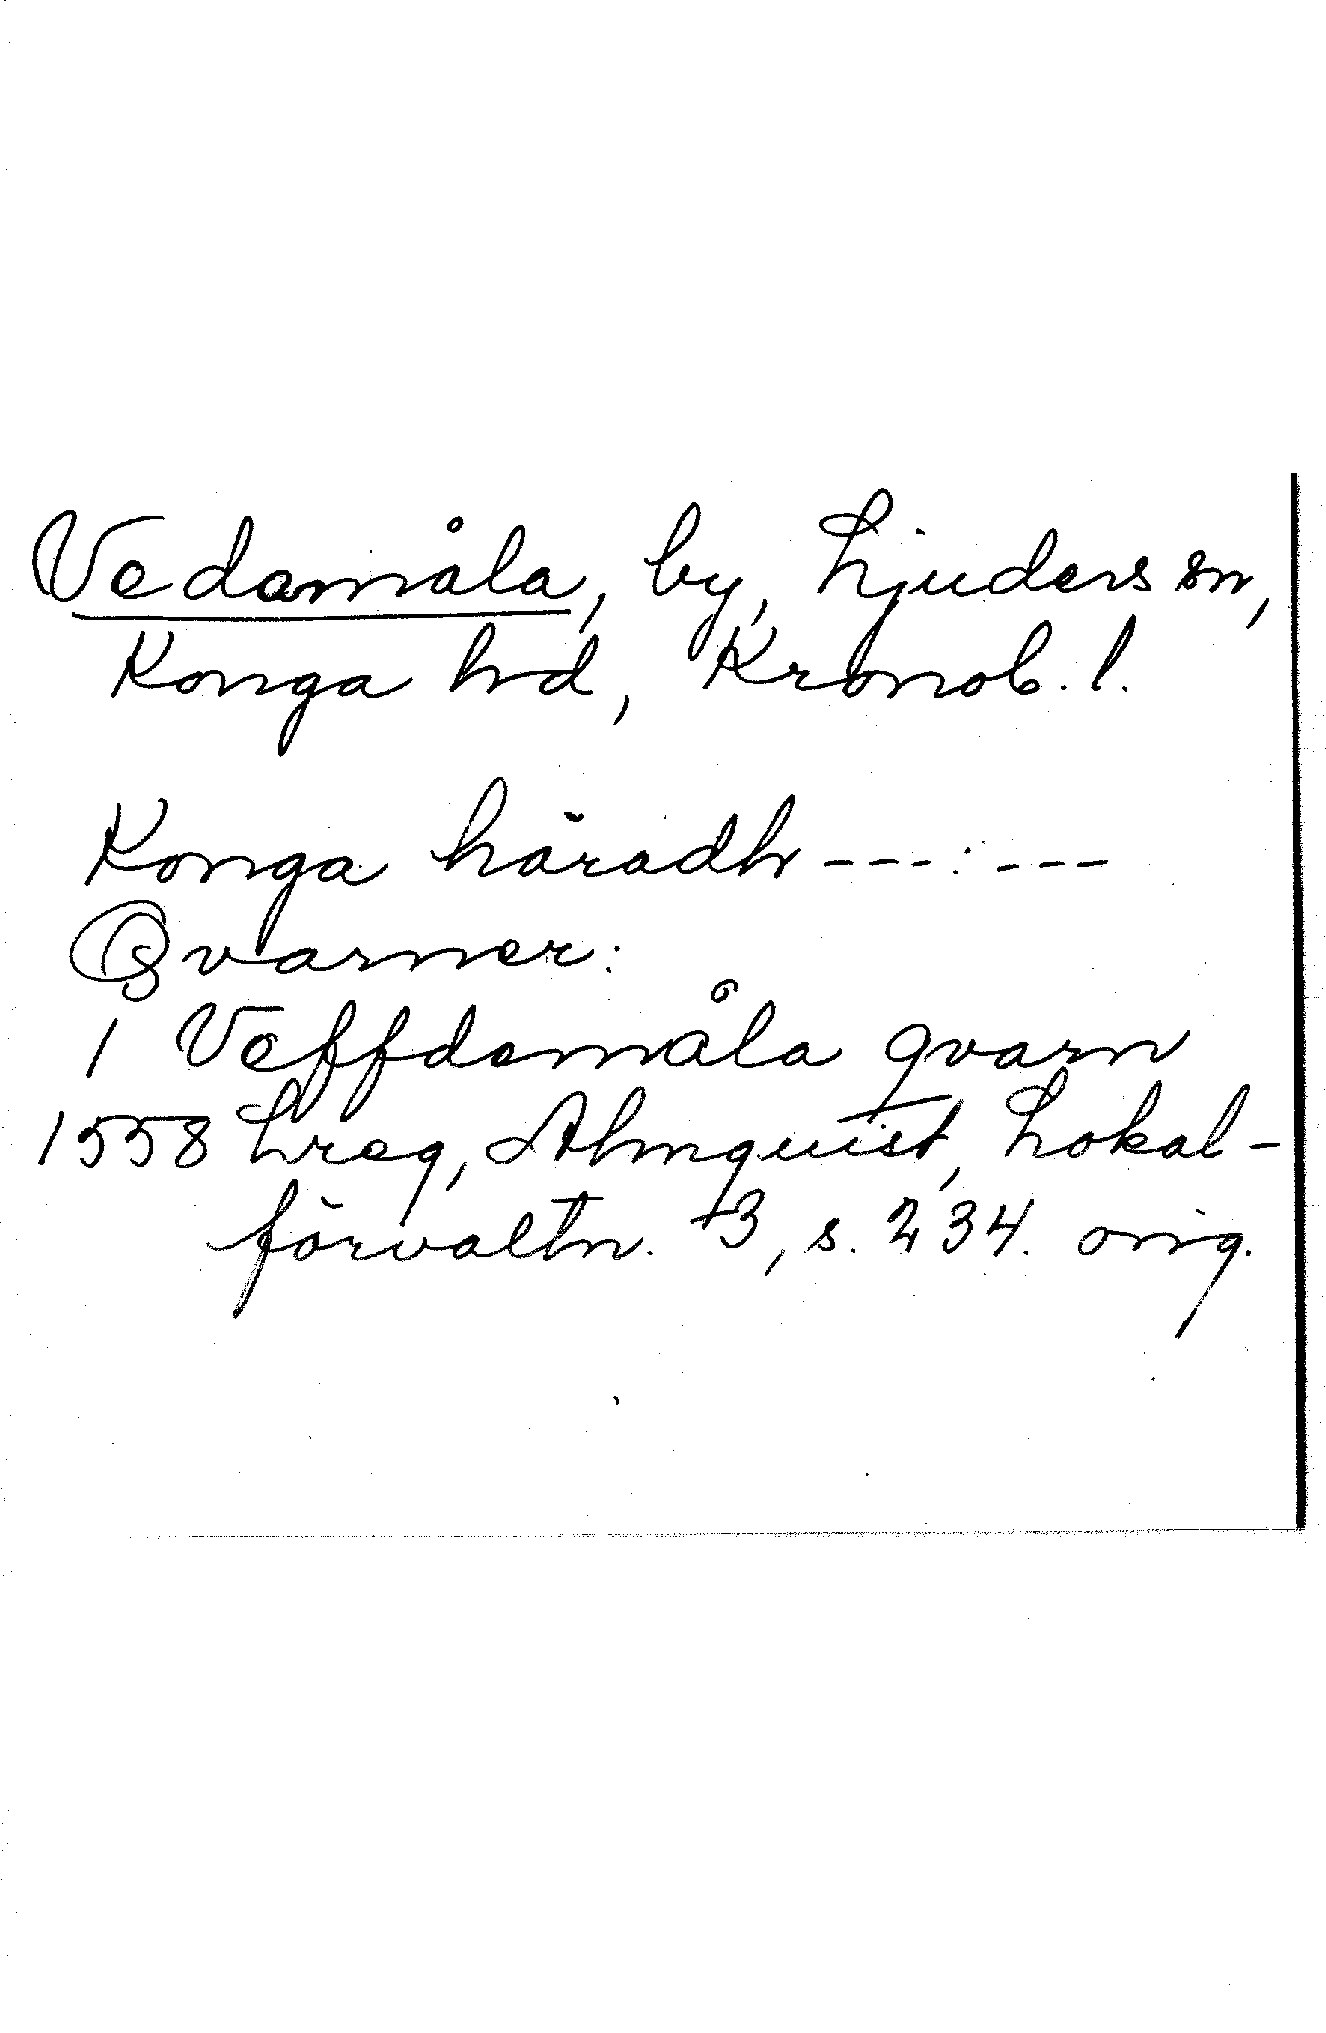 Vedamåla, by, Ljuders sn,
Konga hd, Kronob. l.
Konga häradh ---:---
Qvarner:
1 Veffdemåla qvarn
1558 Lreg, Almquist, Lokal-
förvaltn. 3, s. 234. orig.